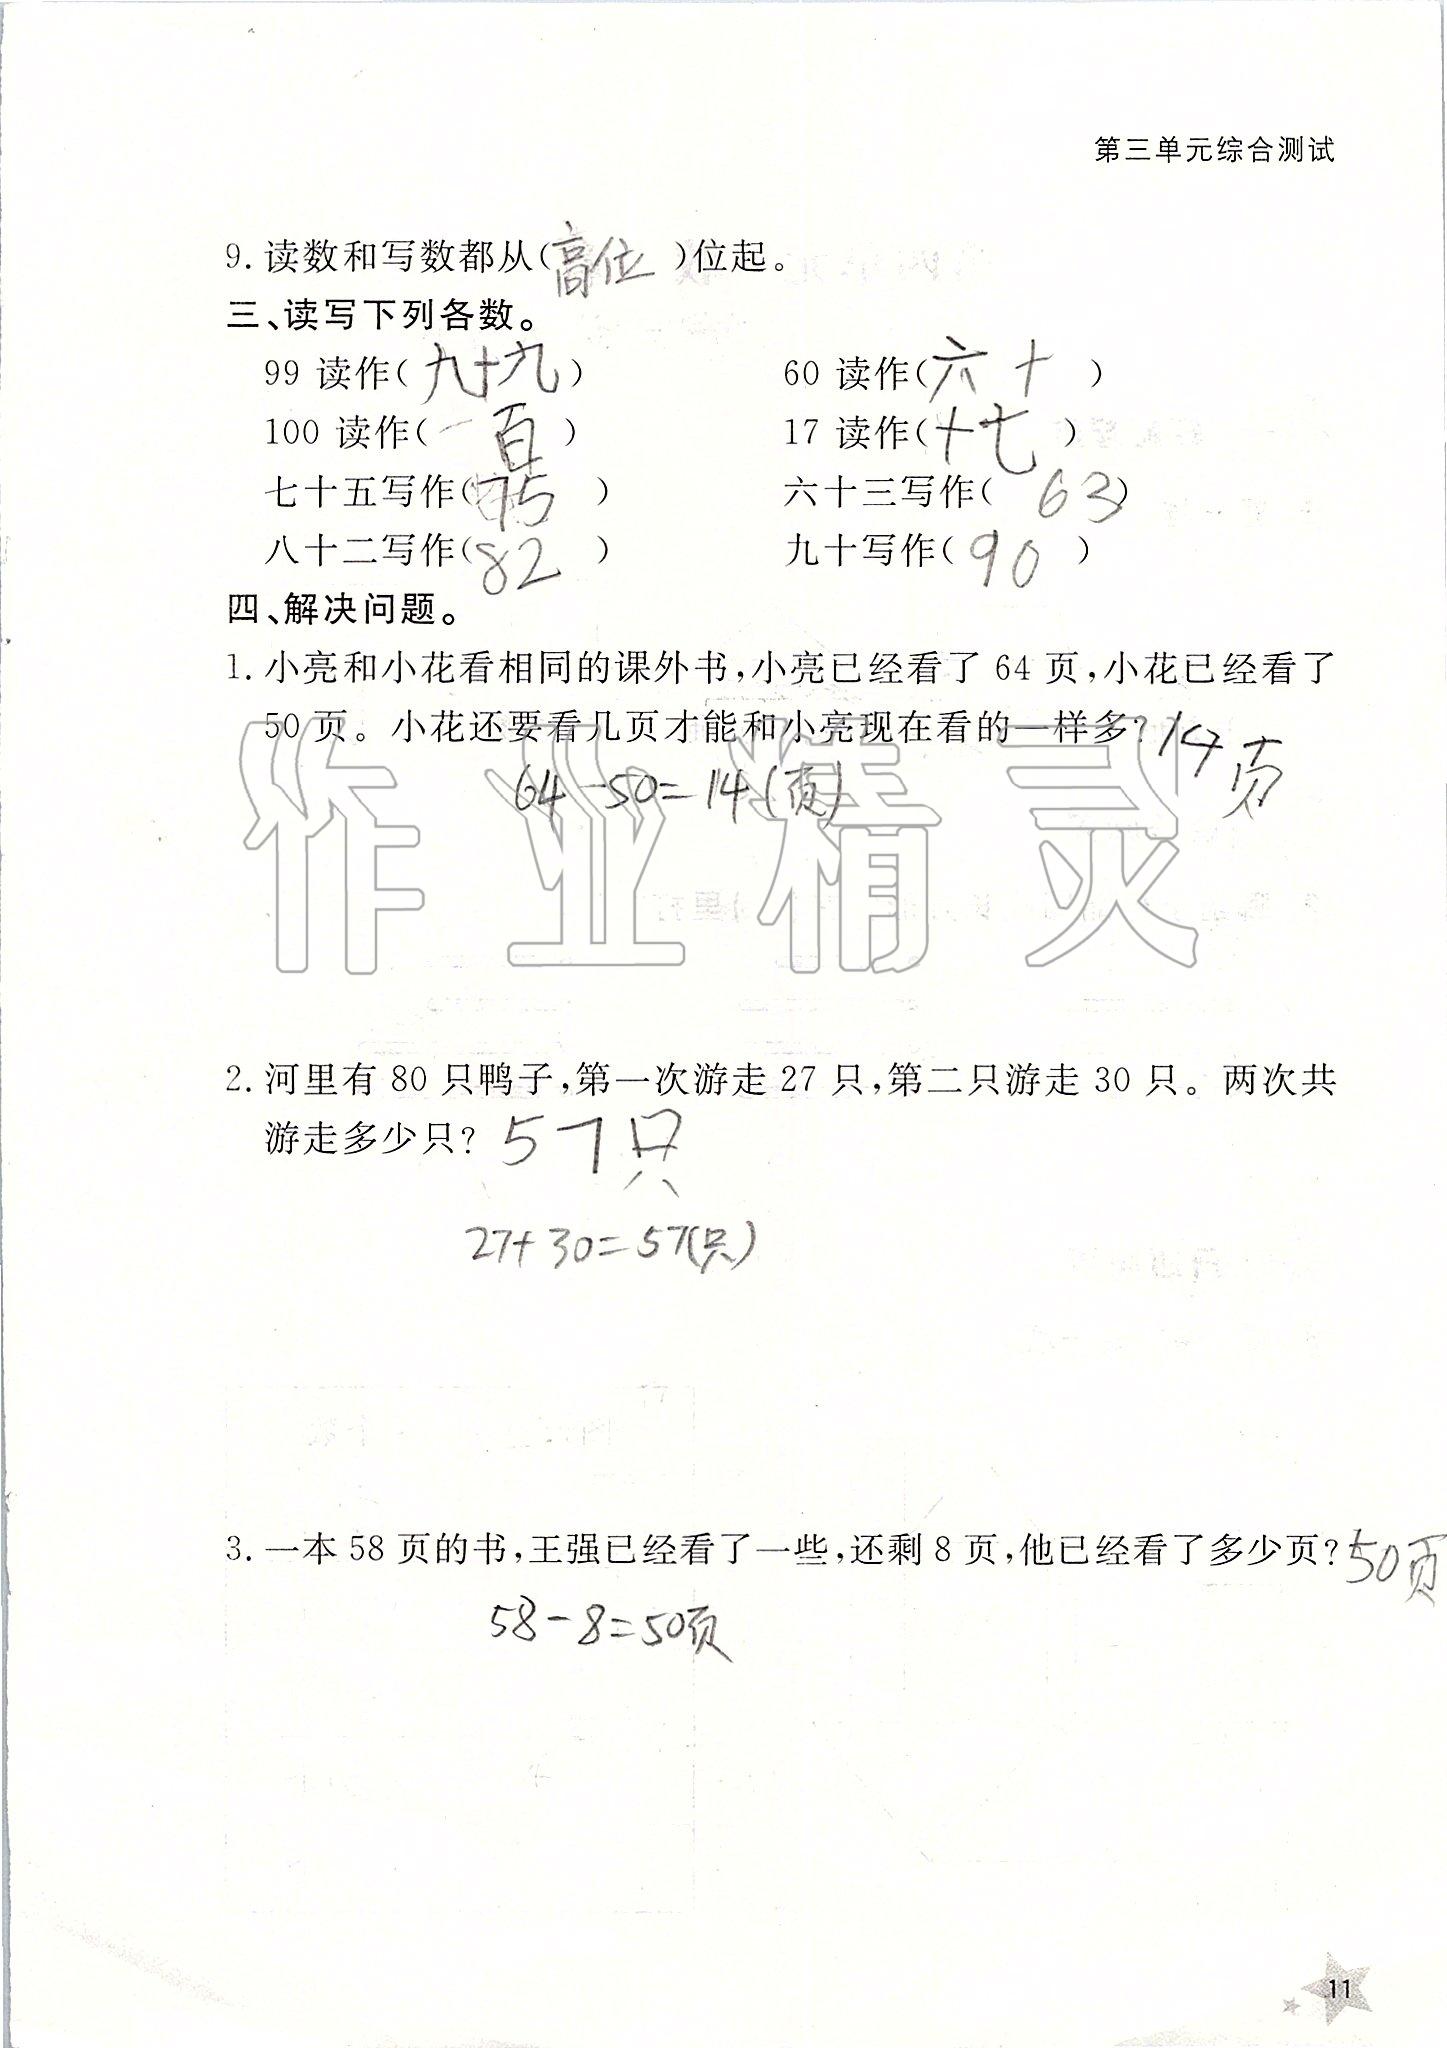 第三单元综合测试
9. 读数和写数都从(高位)位起。
三、读写下列各数。
99 读作(九十九) 60 读作(六十)
100 读作(一百) 17 读作(十七)
七十五写作(75) 六十三写作(63)
八十二写作(82) 九十写作(90)
四、解决问题。
1. 小亮和小花看相同的课外书,小亮已经看了 64 页,小花已经看了
50 页。小花还要看几页才能和小亮现在看的一样多?14页
64-50=14(页)
作业精灵
2. 河里有 80 只鸭子,第一次游走 27 只,第二只游走 30 只。两次共
游走多少只?57只
27+30=57(只)
3. 一本 58 页的书,王强已经看了一些,还剩 8 页,他已经看了多少页?50页
58-8=50页
11